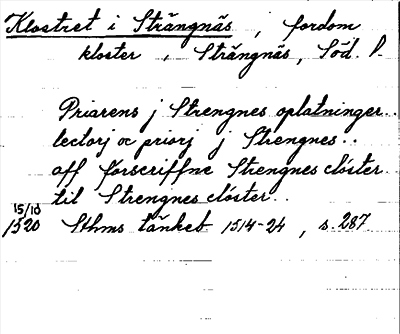 Klostret i Strängnäs, fordom
kloster, Strängnäs, Söd. l.
Priarens j Strengnes oplatninger..
lectorj oc priorj j Strengnes..
aff forscriffne Strengnes clóster
til Strengnes clóster..
15/10
1520 Sthms tänket 1514-24, s. 287